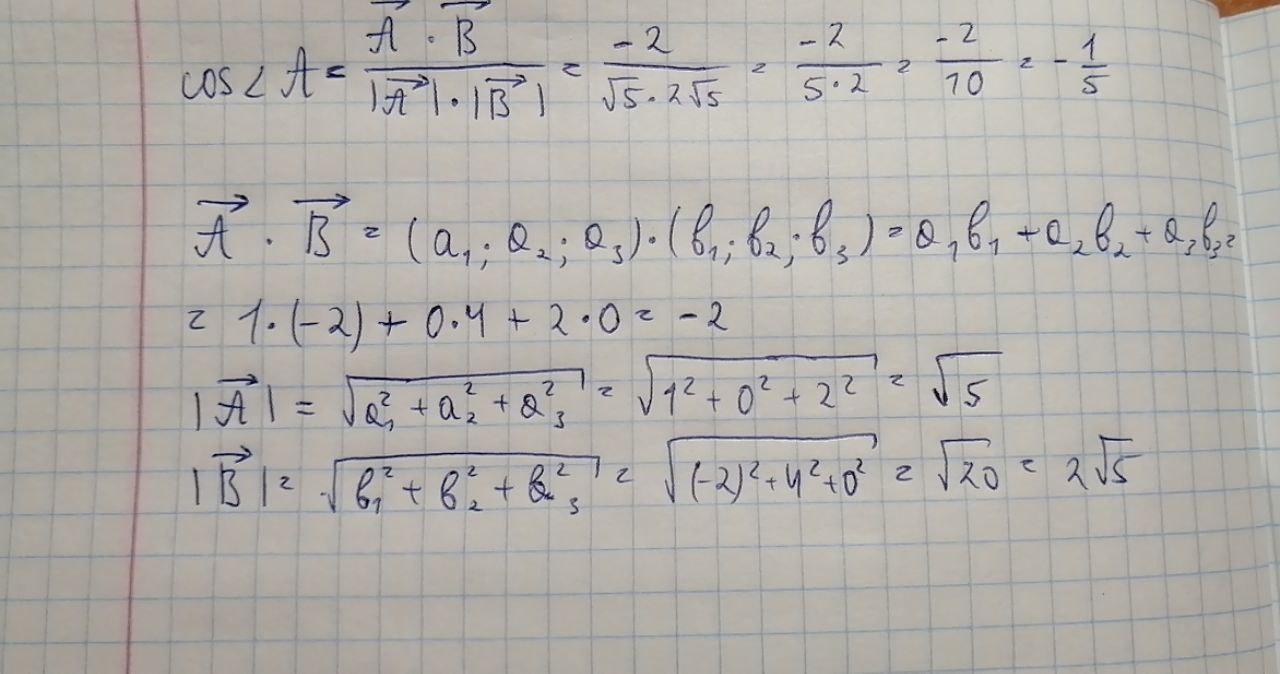 cos∠A = (A⃗ · B⃗) / (|A⃗| · |B⃗|) = -2 / (√5 · 2√5) = -2 / (5 · 2) = -2 / 10 = -1/5
A⃗ · B⃗ = (a₁; a₂; a₃) · (b₁; b₂; b₃) = a₁b₁ + a₂b₂ + a₃b₃ =
= 1 · (-2) + 0 · 4 + 2 · 0 = -2
|A⃗| = √(a₁² + a₂² + a₃²) = √(1² + 0² + 2²) = √5
|B⃗| = √(b₁² + b₂² + b₃²) = √((-2)² + 4² + 0²) = √20 = 2√5